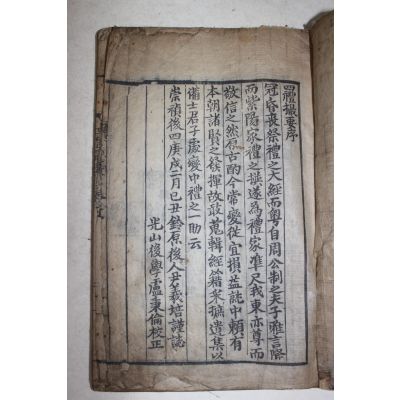 四禮撮要序
冠昏喪祭禮之大經而粤自周公制之夫子雅言降
而紫陽家禮之撰遂為禮家準尺我東亦尊而
敬信之然原古酌今常變從宜損益誌中賴有
本朝諸賢之發揮故敢蒐輯經籍采摭遺集以
備士君子處變中禮之一助云
崇禎後四庚戌二月己丑鈴原後人尹羲培謹誌
光山後學盧秉倫校正